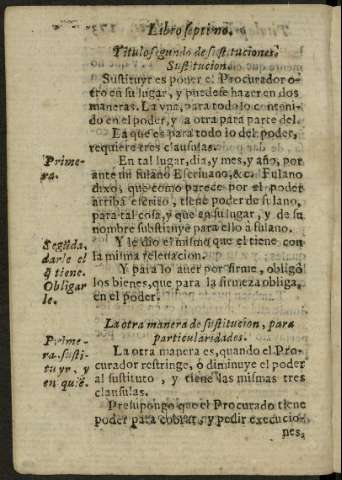 Libro septimo.
Titulo segundo de sustituciones,
Sustitucion.
Sustituyr es poner el Procurador o-
tro en su lugar, y puedese hazer en dos
maneras. La vna, para todo lo conteni-
do en el poder, y la otra para parte del.
La que es para todo lo del poder,
requiere tres clausulas.
Prime-
ra.
En tal lugar, dia, y mes, y año, por
ante mi fulano Escriuano, &c. Fulano
dixo, que como parece por el poder
arriba escrito, tiene poder de fulano,
para tal cosa, y que en su lugar, y de su
nombre substituye para ello à fulano.
Segūda,
darle el
q̄ tiene.
Obligar
le.
Y le dio el mismo que el tiene con
la misma releuacion.
Y para lo auer por firme, obligò
los bienes, que para la firmeza obliga,
en el poder.
La otra manera de sustitucion, para
particularidades.
Prime-
ra, susti-
tuyr, y
en què.
La otra manera es, quando el Pro-
curador restringe, ò diminuye el poder
al sustituto, y tiene las mismas tres
clausulas.
Presupongo que el Procurado tiene
poder para cobrar, y pedir execucio-
nes,